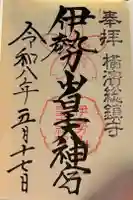 奉拝
横濱総鎮守
伊勢山皇大神宮
令和八年五月十七日